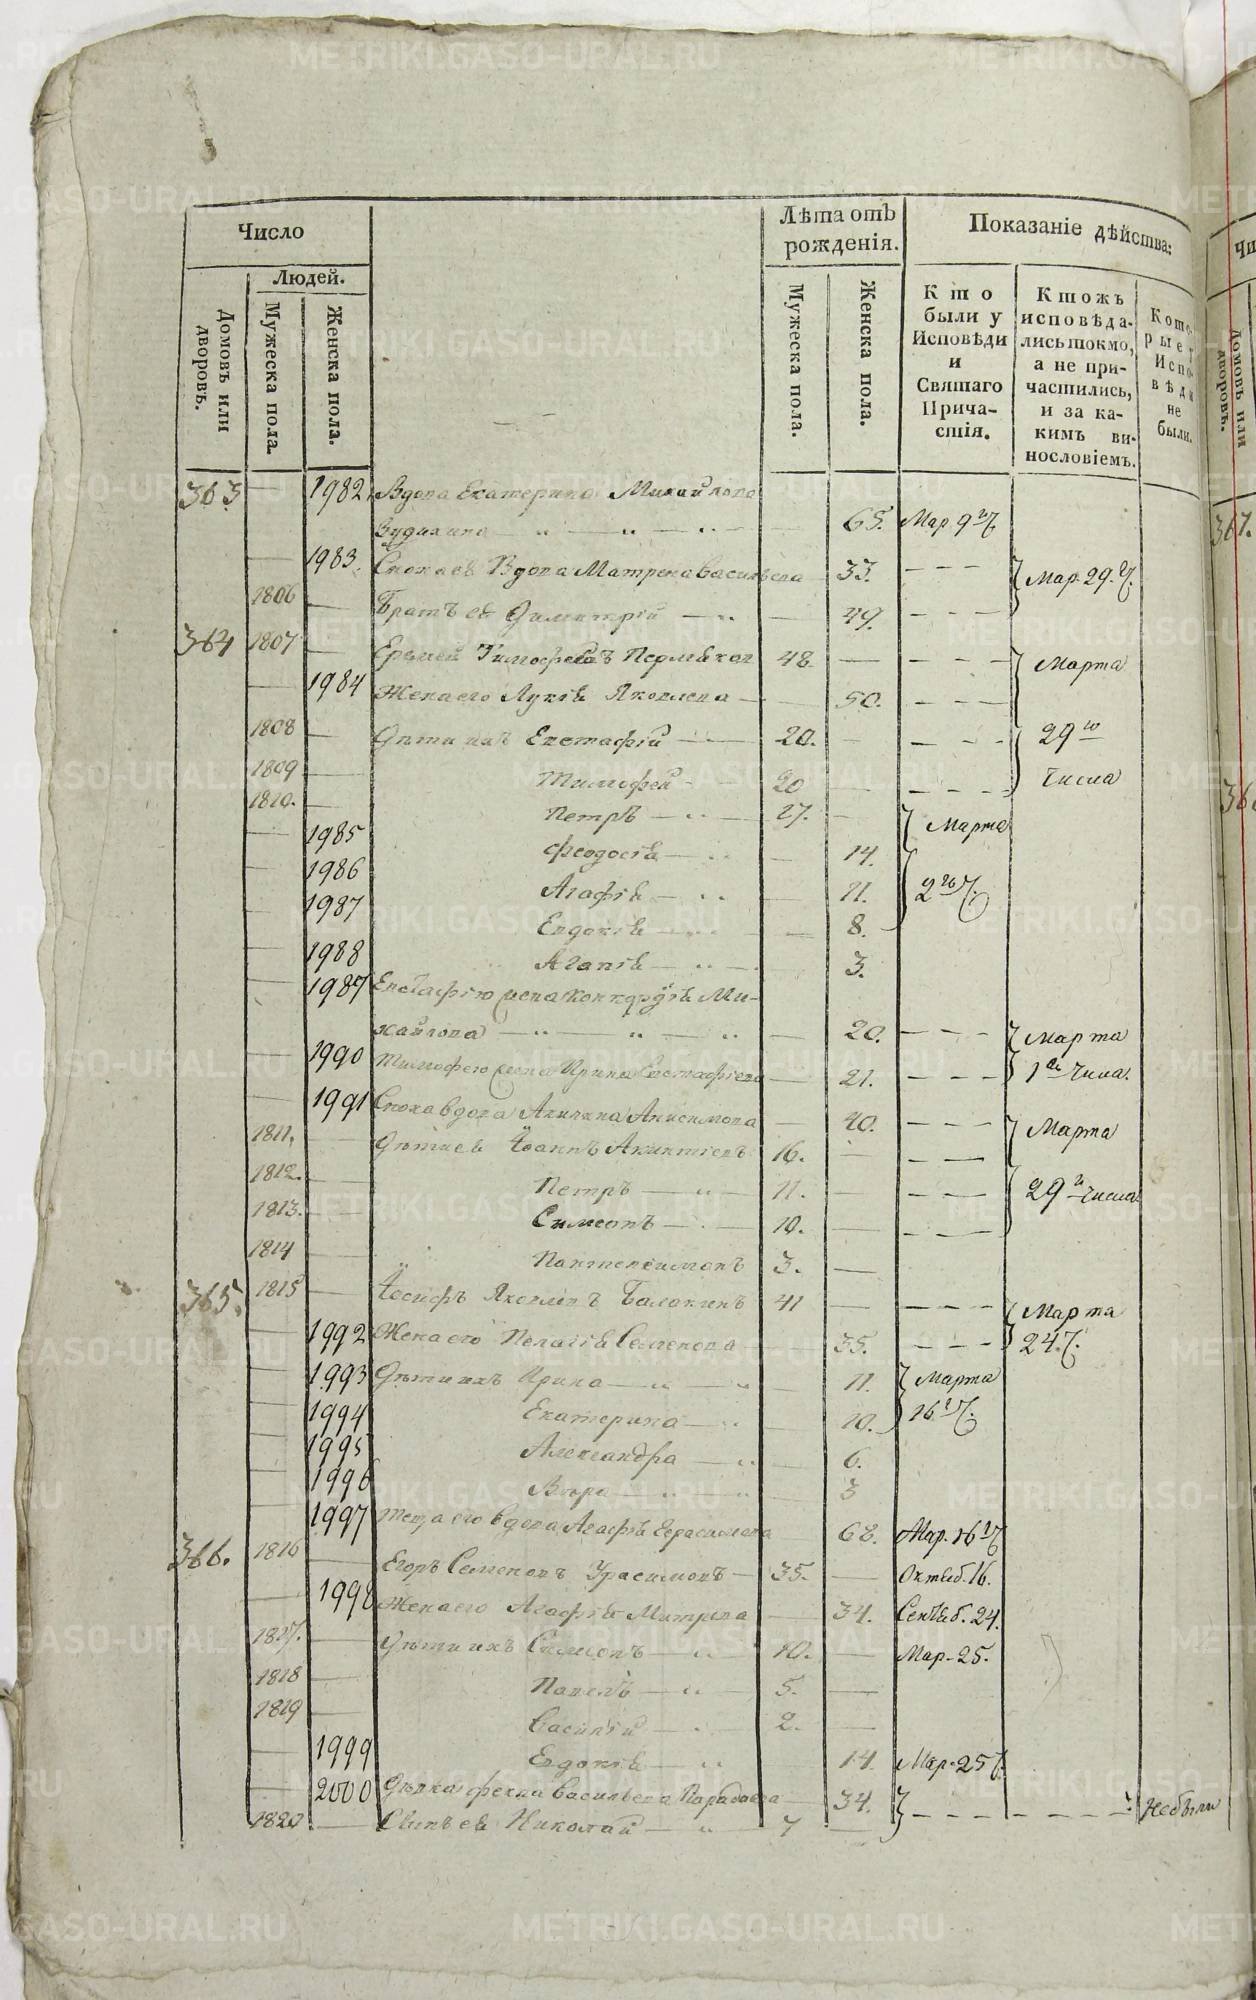 Число
Людей.
Домовъ или дворовъ.
Мужеска пола.
Женска пола.
Лѣта отъ рожденія.
Мужеска пола.
Женска пола.
Показаніе дѣйства:
Кто были у Исповѣди и Святаго Причастія.
Ктожъ исповѣдались токмо, а не причастились, и за какимъ винословіемъ.
Которые у Исповѣди не были.
363 — 1982 Вдова Екатерина Михайлова
— 65. Мар 9 ч
— 1983. Сноха ея Вдова Матрена Васильева 33. — — — Мар. 29. ч.
1806 — Братъ ея Димитрій — — 49. — — —
364 1807 — Еремей Тимофеевъ 48. — — — — Марта
— 1984 Жена его Лукія Яковлева — 50. — — —
1808 — Дѣти ихъ Евстафій — 20. — — — — 29го
1809 — Тимофей — 20 — — — числа
1810. — Петръ — 27. — Марта
— 1985 Феодосія — — 14.
1986 Агафія — — 11. 2го ч.
— 1987 Евдокія — — 8.
— 1988 Агапія — — 3.
— 1989 Евстафію жена Ми-
хайлова — — — 20. — — — Марта
— 1990 Тимофею жена Ирина Евстафіева — 21. — — — 1го числа.
— 1991 Сноха вдова Акилина Анисимова — 40. — — — Марта
1811. — Дѣти ея Іоаннъ 16. — — — —
1812. — Петръ — 11. — — — — 29 числа
1813. — Симеонъ — 10. — — — —
1814 — Пантелеимонъ 3. —
365. 1815 — Іосифъ Яковлевъ Балакинъ 41 — — — — Марта
— 1992 Жена его Пелагія Семенова — 35. — — — 24. ч.
— 1993 Дѣти ихъ Ирина — — 11. Марта
— 1994 Екатерина — — 10. 16 ч.
— 1995 Александра — — 6.
— 1996 Вѣра — — 3
— 1997 Теща его вдова Агафія Герасимова 68. Мар. 16 ч
366. 1816 — Егоръ Семеновъ — 35. — Октяб. 16.
— 1998 Жена его Агафія — 34. Сентяб. 24.
1817. — Дѣти ихъ Симеонъ — 10. — Мар. 25.
1818 — Павелъ — 5. —
1819 — Василій — 2. —
— 1999 Евдокія — 14. Мар. 25 ч.
— 2000 Дѣвка Васильева — 34. — — — — — — Небыли
1820 — Сынъ ея Николай — 7 —
METRIKI.GASO-URAL.RU